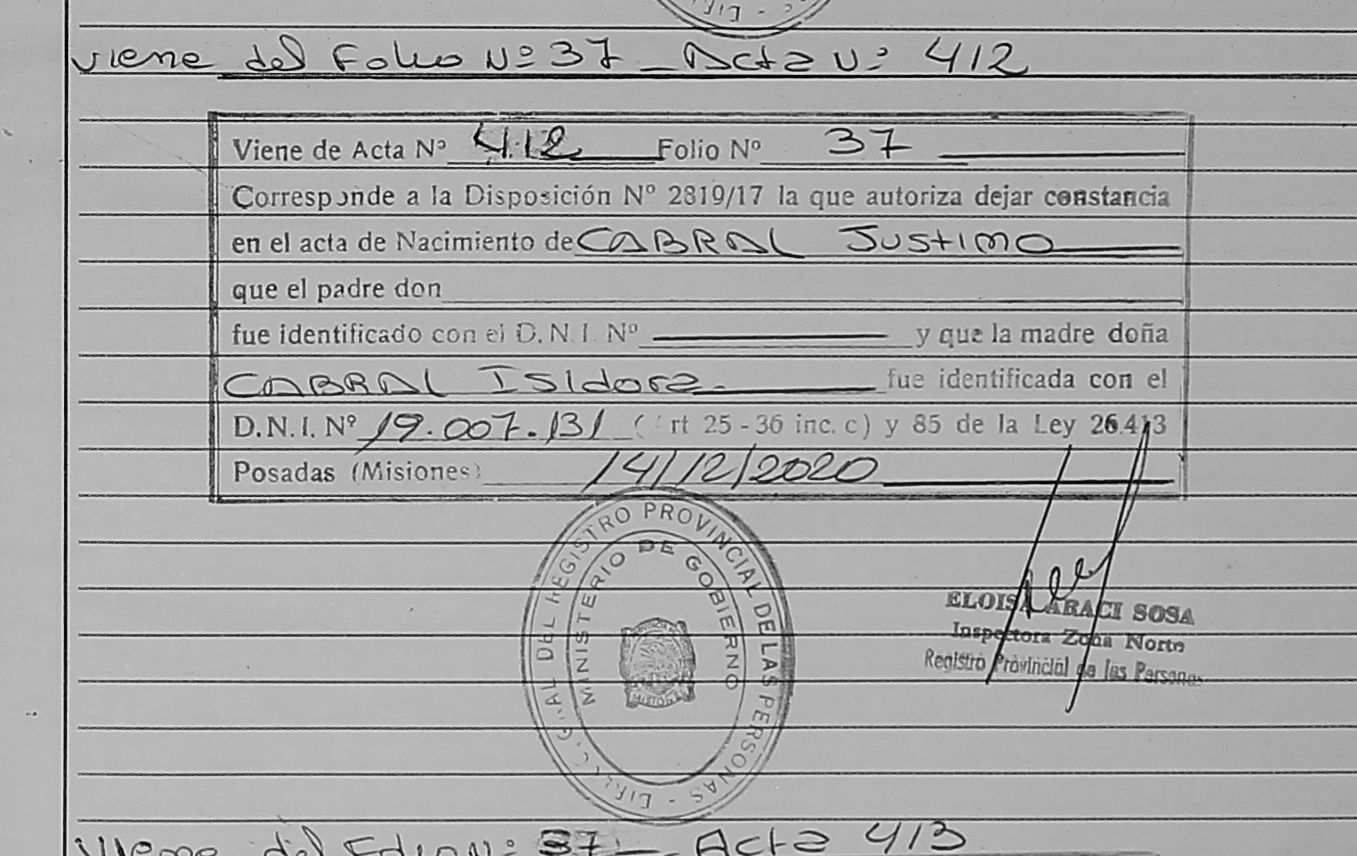 viene del Folio Nº 37 - Acta Nº 412
Viene de Acta Nº 412 Folio Nº 37
Corresponde a la Disposición Nº 2819/17 la que autoriza dejar constancia
en el acta de Nacimiento de CABRAL JUSTINO
que el padre don
fue identificado con el D. N. I. Nº y que la madre doña
CABRAL ISIdora fue identificada con el
D.N.I. Nº 19.007.131 ( rt 25 - 36 inc. c) y 85 de la Ley 26.413
Posadas (Misiones) 14/12/2020
REGISTRO PROVINCIAL DE LAS PERSONAS
MINISTERIO DE GOBIERNO
MISIONES
ELOISA ARACI SOSA
Inspectora Zona Norte
Registro Provincial de las Personas
Viene del Folio Nº 37 - Acta 413